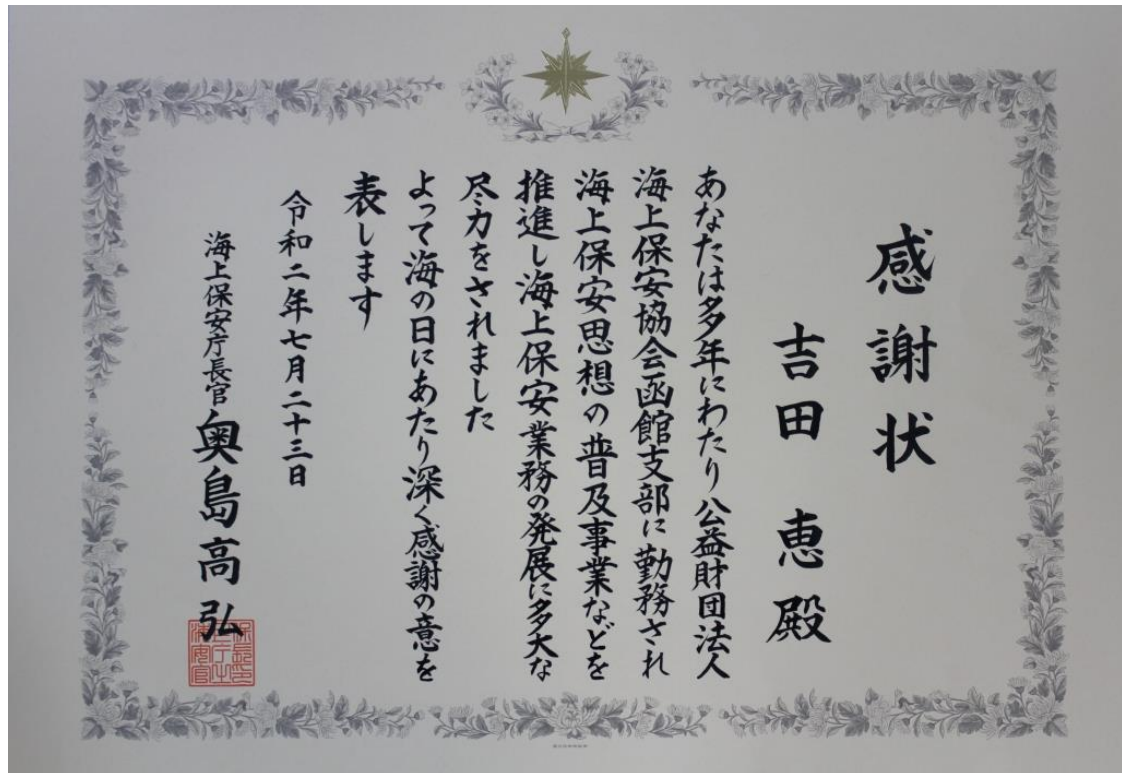 感謝状
吉田 恵 殿
あなたは多年にわたり公益財団法人
海上保安協会函館支部に勤務され
海上保安思想の普及事業などを
推進し海上保安業務の発展に多大な
尽力をされました
よって海の日にあたり深く感謝の意を
表します
令和二年七月二十三日
海上保安庁長官 奥島高弘